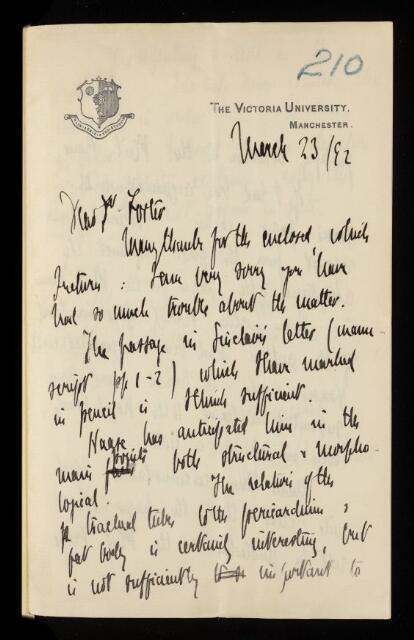 210
THE VICTORIA UNIVERSITY.
MANCHESTER.
March 23/92
Dear Dr Foster
Many thanks for the enclosed, which
I return: I am very sorry you have
had so much trouble about the matter.
The passage in Sinclair's letter (manu-
script pp 1-2) which I have marked
in pencil is I think sufficient.
Haase has anticipated him in the
main points both structural & morpho-
logical. The relation of the
tracheal tubes to the pericardium &
fat body is certainly interesting, but
is not sufficiently important to